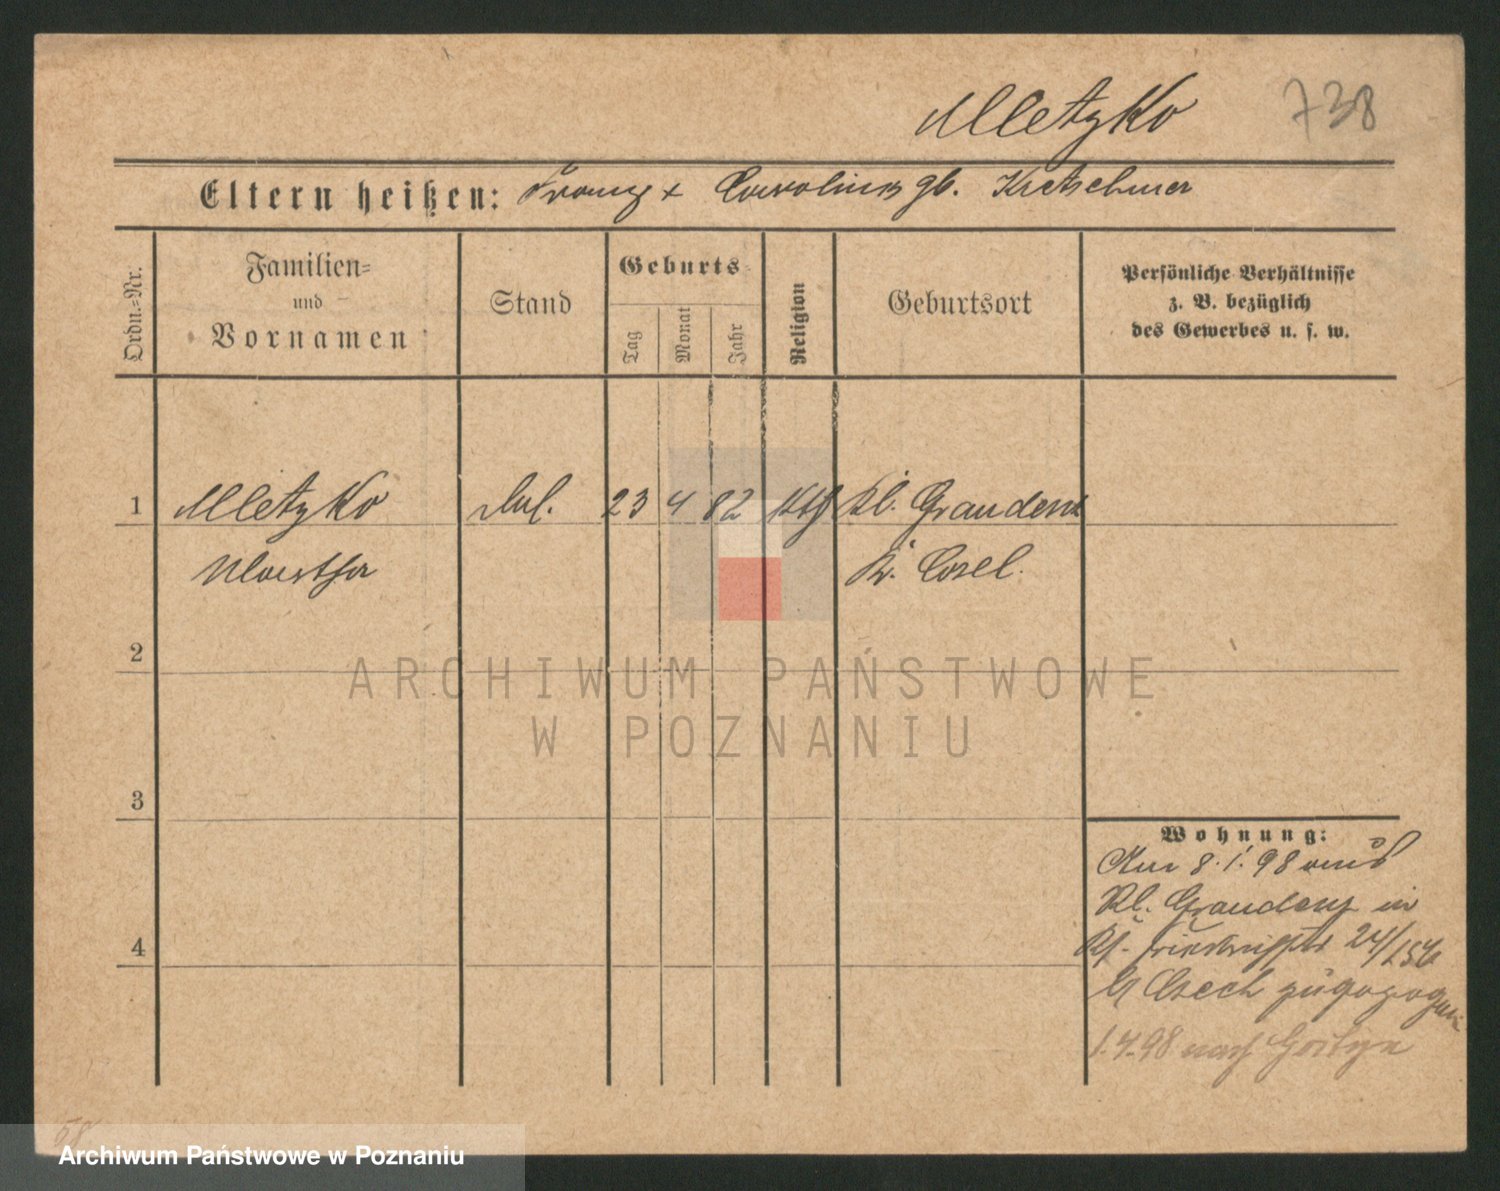 Mletzko 738
Eltern heißen: Franz + Caroline gb. Kretschmer
Ordn.-Nr.
Familien=
und
Vornamen
Stand
Geburts
Tag
Monat
Jahr
Religion
Geburtsort
Persönliche Verhältnisse
z. B. bezüglich
des Gewerbes u. s. w.
1 Mletzko 23 4 82 kth Kl. Graudenz
Martha Kr. Cosel.
2
3
4
Wohnung:
Am 8.1.98 aus
Kl. Graudenz in
24/156
b/ Czech zugezogen
1.7.98 nach Gostyn
58
ARCHIWUM PAŃSTWOWE
W POZNANIU
Archiwum Państwowe w Poznaniu